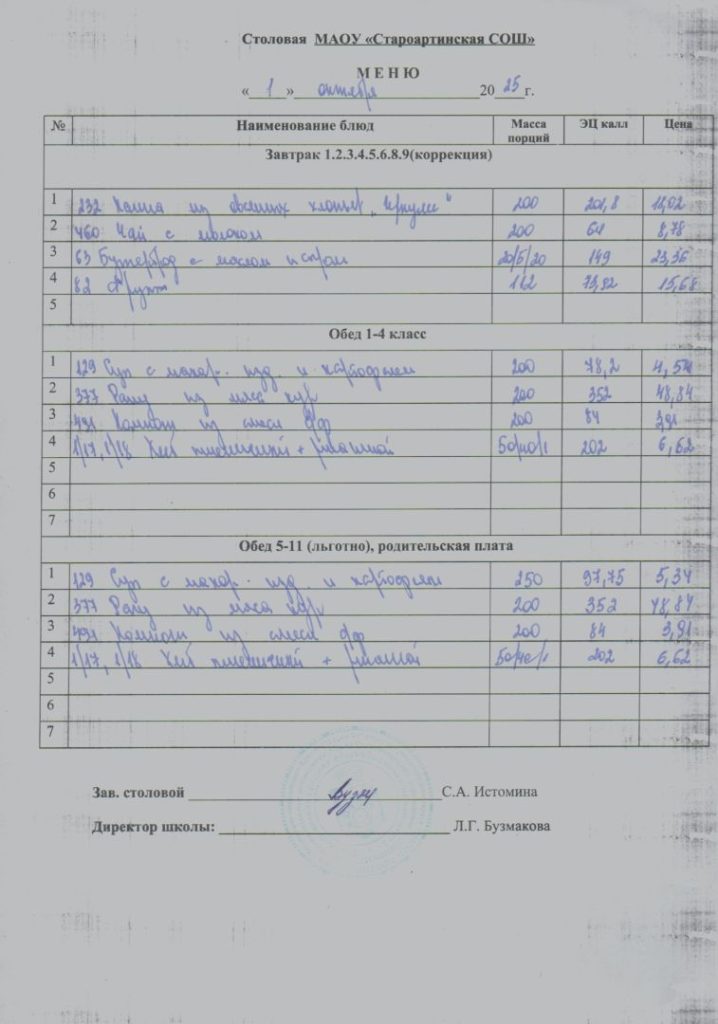 Столовая МАОУ «Староартинская СОШ»
М Е Н Ю
« 1 » октября 20 25 г.
№ Наименование блюд Масса порций ЭЦ калл Цена
Завтрак 1.2.3.4.5.6.8.9(коррекция)
1 232 Каша из овсяных хлопьев „Геркулес" 200 201,8
2 460 Чай с молоком 200 64 8,78
3 63 Бутерброд с маслом и сыром 20/5/20 149 23,36
4 82 Фрукт 162 73,92 15,68
5
Обед 1-4 класс
1 129 Суп с макар. изд. и картофелем 200 78,2 4,54
2 377 Рагу из мяса кур 200 352 48,84
3 491 Компот из смеси с/фр 200 84 3,91
4 1/17, 1/18 Хлеб пшеничный + ржаной 202 6,62
5
6
7
Обед 5-11 (льготно), родительская плата
1 129 Суп с макар. изд. и картофелем 250 97,75 5,34
2 377 Рагу из мяса кур 200 352 48,84
3 491 Компот из смеси с/фр 200 84 3,91
4 1/17, 1/18 Хлеб пшеничный + ржаной 202 6,62
5
6
7
Зав. столовой С.А. Истомина
Директор школы: Л.Г. Бузмакова